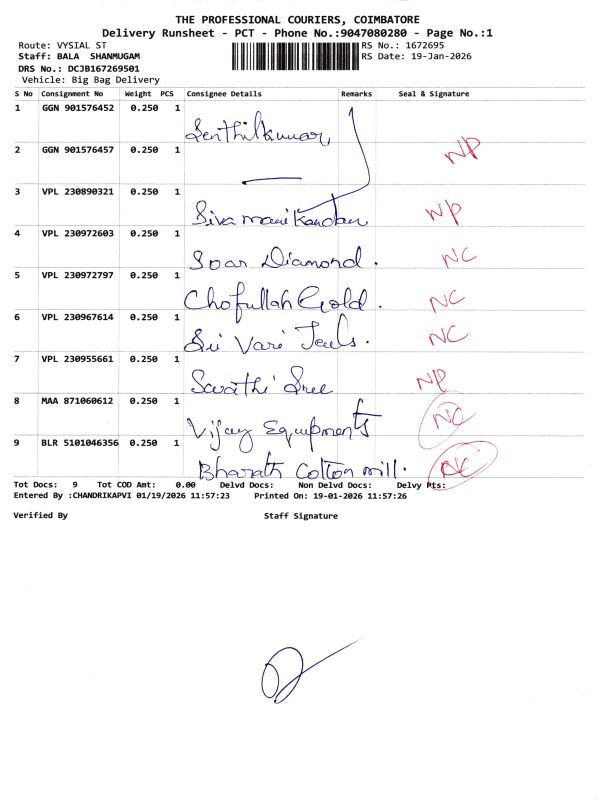 THE PROFESSIONAL COURIERS, COIMBATORE
Delivery Runsheet - PCT - Phone No.:9047080280 - Page No.:1
Route: VYSIAL ST RS No.: 1672695
Staff: BALA SHANMUGAM RS Date: 19-Jan-2026
DRS No.: DCJB167269501
Vehicle: Big Bag Delivery
S No Consignment No Weight PCS Consignee Details Remarks Seal & Signature
1 GGN 901576452 0.250 1 Senthilkumar
2 GGN 901576457 0.250 1 NP
3 VPL 230890321 0.250 1 Siva manikandan NP
4 VPL 230972603 0.250 1 Soar Diamond. NC
5 VPL 230972797 0.250 1 Chofullah Gold. NC
6 VPL 230967614 0.250 1 Sri Vari Jewls. NC
7 VPL 230955661 0.250 1 Sarathi Sree NP
8 MAA 871060612 0.250 1 Vijay Equipments NC
9 BLR 5101046356 0.250 1 Bharath Cotton mill. NC
Tot Docs: 9 Tot COD Amt: 0.00 Delvd Docs: Non Delvd Docs: Delvy Pts:
Entered By :CHANDRIKAPVI 01/19/2026 11:57:23 Printed On: 19-01-2026 11:57:26
Verified By Staff Signature